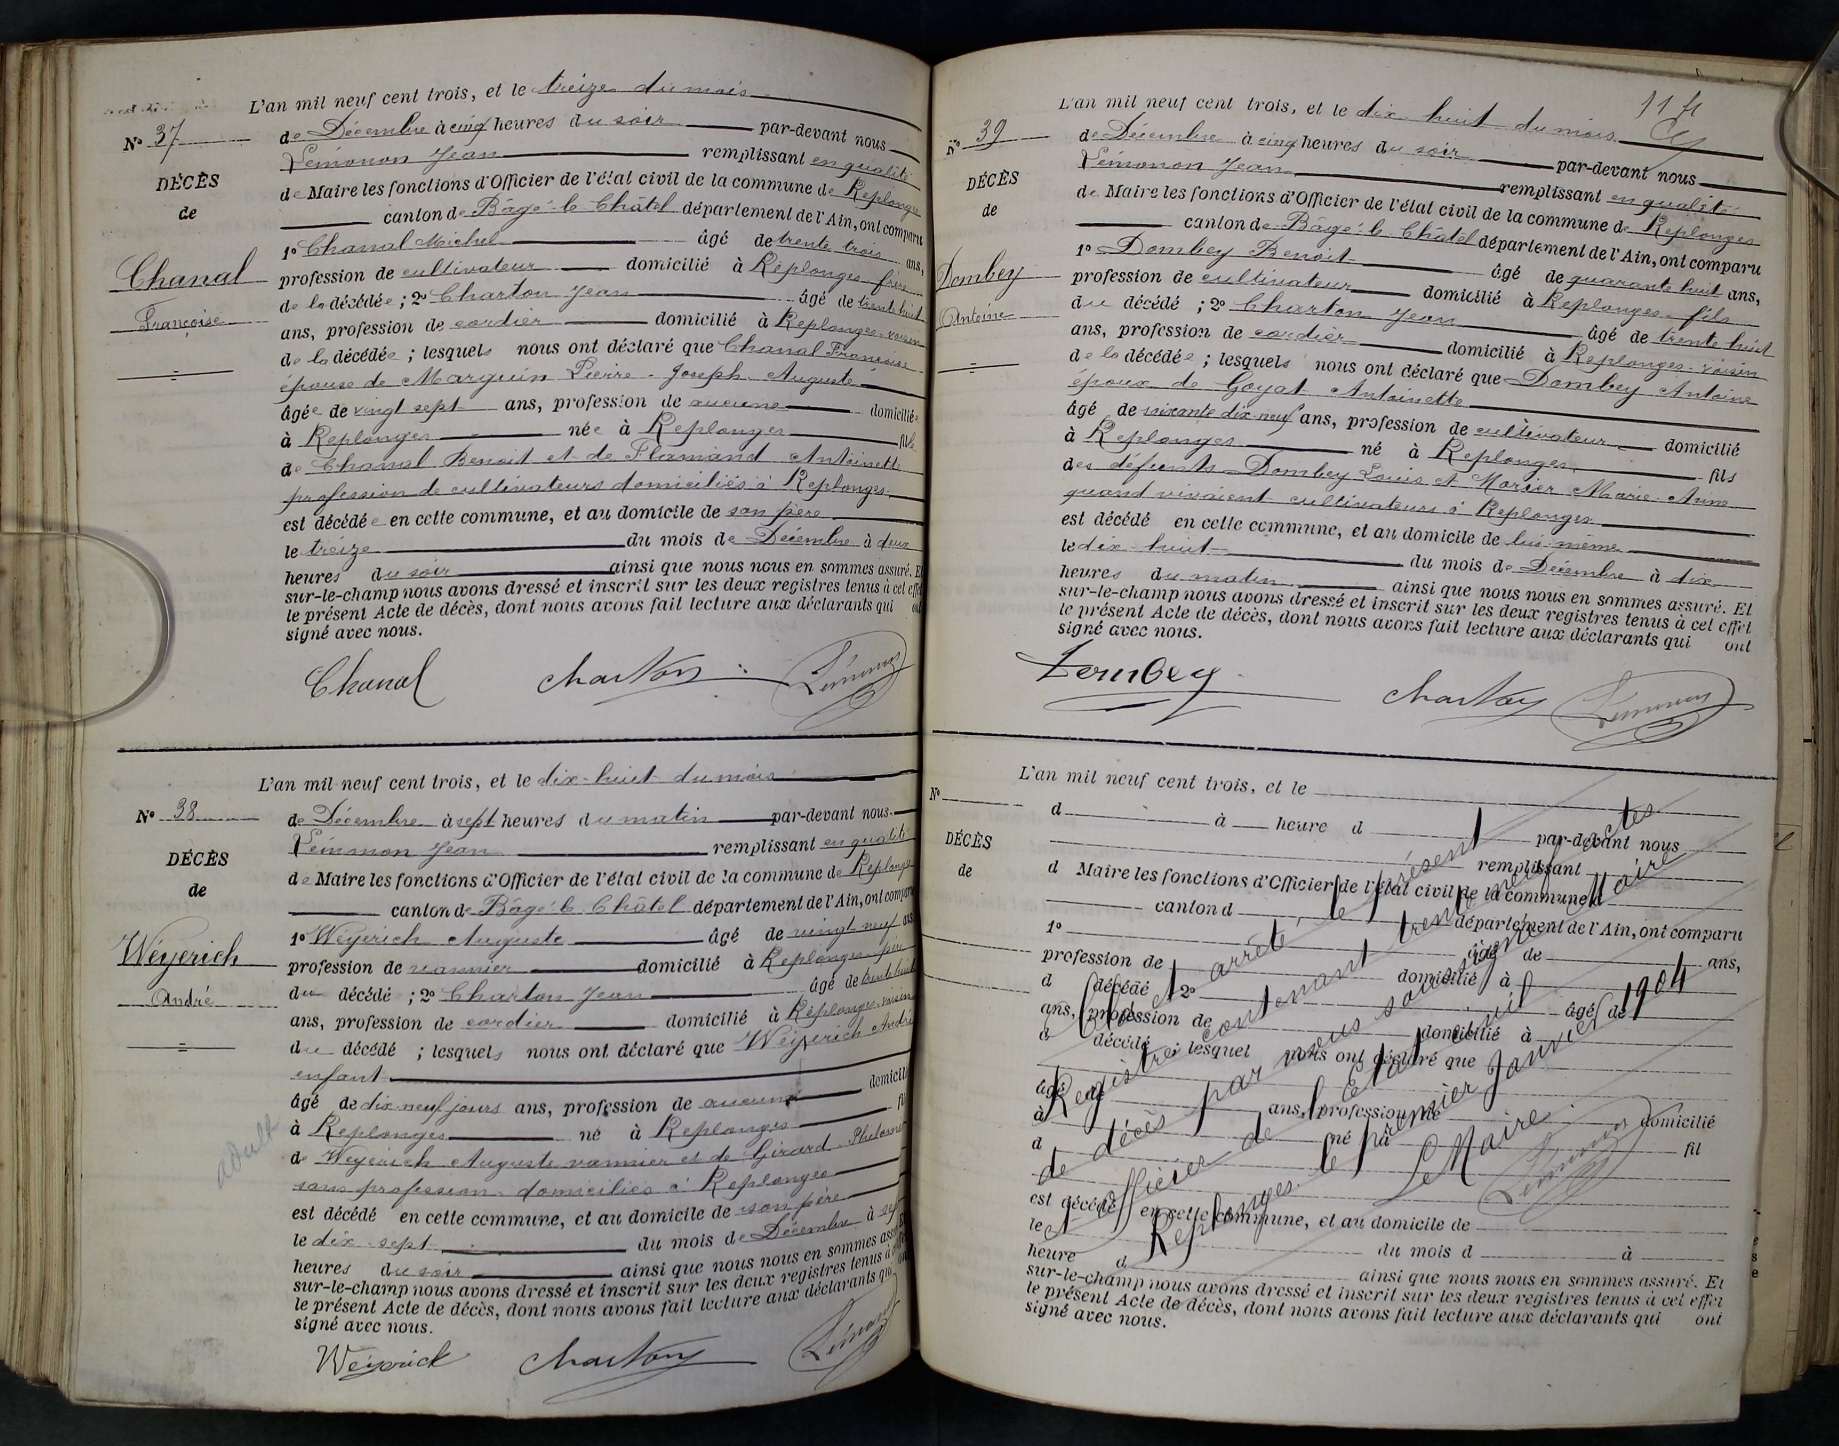 L'an mil neuf cent trois, et le treize du mois
N° 37
de Décembre à cinq heures du soir par-devant nous
Lémonon Jean remplissant en qualité
DÉCÈS
de Maire les fonctions d'Officier de l'état civil de la commune de Replonges
de
canton de Bâgé-le-Châtel département de l'Ain, ont comparu
1° Chanal Michel âgé de trente trois ans,
Chanal
profession de cultivateur domicilié à Replonges frère
Françoise
de la décédée ; 2° Charton Jean âgé de trente huit
ans, profession de cordier domicilié à Replonges voisin
de la décédée ; lesquels nous ont déclaré que Chanal Françoise
épouse de Marguin Pierre-Joseph-Auguste
âgée de vingt sept ans, profession de aucune domiciliée
à Replonges née à Replonges fille
de Chanal Benoit et de Flamand Antoinette
profession de cultivateurs domiciliés à Replonges
est décédée en cette commune, et au domicile de son père
le treize du mois de Décembre à deux
heures du soir ainsi que nous nous en sommes assuré. Et
sur-le-champ nous avons dressé et inscrit sur les deux registres tenus à cet effet
le présent Acte de décès, dont nous avons fait lecture aux déclarants qui ont
signé avec nous.
Chanal Charton Lémonon
L'an mil neuf cent trois, et le dix-huit du mois
N° 38
de Décembre à sept heures du matin par-devant nous
Lémonon Jean remplissant en qualité
DÉCÈS
de Maire les fonctions d'Officier de l'état civil de la commune de Replonges
de
canton de Bâgé-le-Châtel département de l'Ain, ont comparu
1° Weyerich Auguste âgé de vingt neuf ans
Weyerich
profession de vannier domicilié à Replonges père
André
du décédé ; 2° Charton Jean âgé de trente huit
ans, profession de cordier domicilié à Replonges voisin
du décédé ; lesquels nous ont déclaré que Weyerich André
enfant
âgé de dix-neuf jours ans, profession de aucune domicilié
à Replonges né à Replonges fils
adult
de Weyerich Auguste vannier et de Girard Philomène
sans profession domiciliés à Replonges
est décédé en cette commune, et au domicile de son père
le dix-sept du mois de Décembre à sept
heures du soir ainsi que nous nous en sommes assuré. Et
sur-le-champ nous avons dressé et inscrit sur les deux registres tenus à cet effet
le présent Acte de décès, dont nous avons fait lecture aux déclarants qui ont
signé avec nous.
Weyerich Charton Lémonon
L'an mil neuf cent trois, et le dix-huit du mois
N° 39
de Décembre à cinq heures du soir par-devant nous
Lémonon Jean remplissant en qualité
DÉCÈS
de Maire les fonctions d'Officier de l'état civil de la commune de Replonges
de
canton de Bâgé-le-Châtel département de l'Ain, ont comparu
1° Dombey Benoit âgé de quarante huit ans,
Dombey
profession de cultivateur domicilié à Replonges fils
Antoine
du décédé ; 2° Charton Jean âgé de trente huit
ans, profession de cordier domicilié à Replonges voisin
de la décédée ; lesquels nous ont déclaré que Dombey Antoine
époux de Goyat Antoinette
âgé de soixante dix-neuf ans, profession de cultivateur domicilié
à Replonges né à Replonges fils
des défunts Dombey Louis et Morier Marie-Anne
quand vivaient cultivateurs à Replonges
est décédé en cette commune, et au domicile de lui-même
le dix-huit du mois de Décembre à dix
heures du matin ainsi que nous nous en sommes assuré. Et
sur-le-champ nous avons dressé et inscrit sur les deux registres tenus à cet effet
le présent Acte de décès, dont nous avons fait lecture aux déclarants qui ont
signé avec nous.
Dombey Charton Lémonon
L'an mil neuf cent trois, et le
N°
d à heure d par-devant nous
remplissant
DÉCÈS
d Maire les fonctions d'Officier de l'état civil de la commune d
de
canton d département de l'Ain, ont comparu
1° âgé de ans,
profession de domicilié à
d décédé 2° âgé de
ans, profession de domicilié à
d décédé ; lesquel nous ont déclaré que
âgé de ans, profession de domicilié
à né à fil
d
est décédé en cette commune, et au domicile de
le du mois d à
heure d ainsi que nous nous en sommes assuré. Et
sur-le-champ nous avons dressé et inscrit sur les deux registres tenus à cet effet
le présent Acte de décès, dont nous avons fait lecture aux déclarants qui ont
signé avec nous.
Clos et arrêté le présent
Registre contenant trente neuf actes
de décès par nous soussigné Maire
et officier de l'État civil
Replonges le premier Janvier 1904
Le Maire
Lémonon